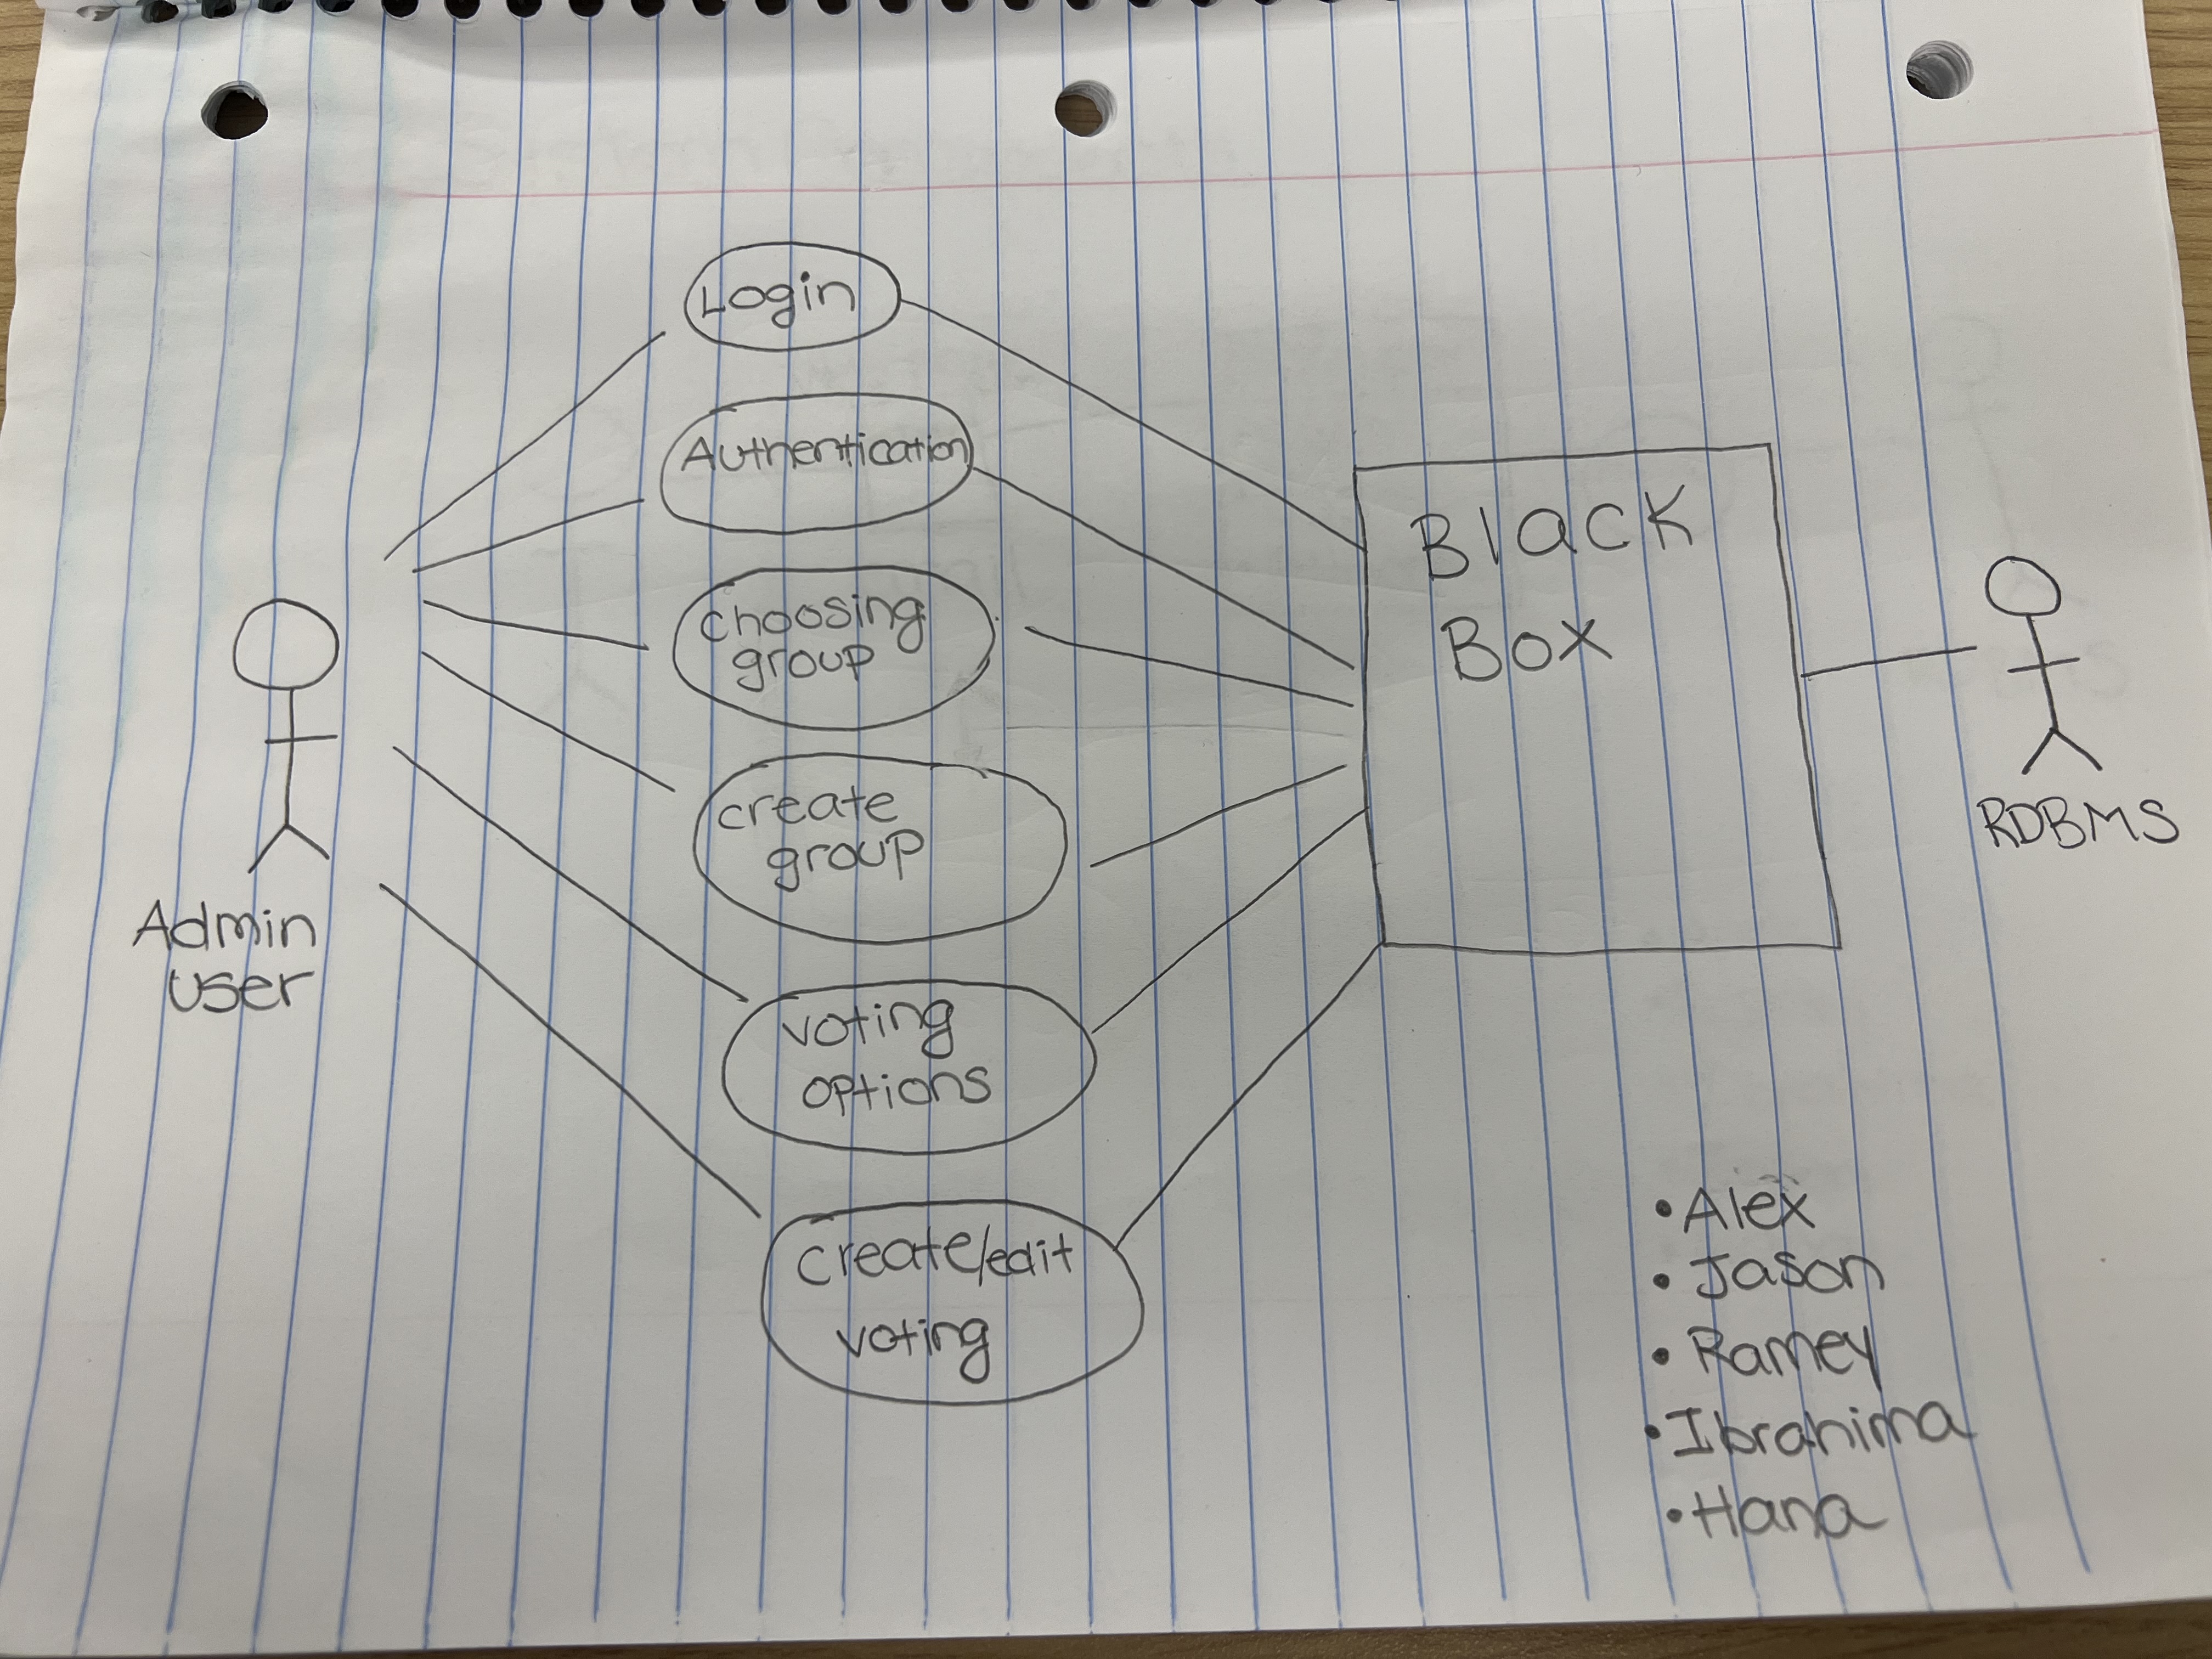 Admin
User
Login
Authentication
Choosing
group
create
group
voting
options
Create/edit
voting
Black
Box
RDBMS
• Alex
• Jason
• Ramey
• Ibrahima
• Hana